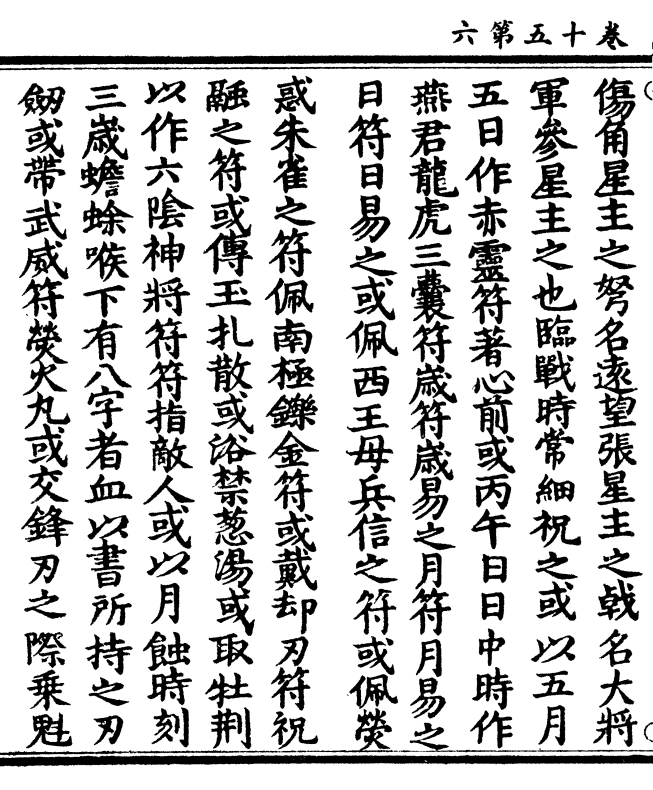 卷十五第六
傷角星主之弩名遠望張星主之戟名大將
軍參星主之也臨戰時常細祝之或以五月
五日作赤靈符著心前或丙午日日中時作
燕君龍虎三囊符歲符歲易之月符月易之
日符日易之或佩西王母兵信之符或佩熒
惑朱雀之符佩南極鑠金符或戴却刃符祝
融之符或傳玉扎散或浴禁葱湯或取牡荆
以作六陰神將符符指敵人或以月蝕時刻
三歲蟾蜍喉下有八字者血以書所持之刃
劒或帶武威符熒火丸或交鋒刃之際乘魁